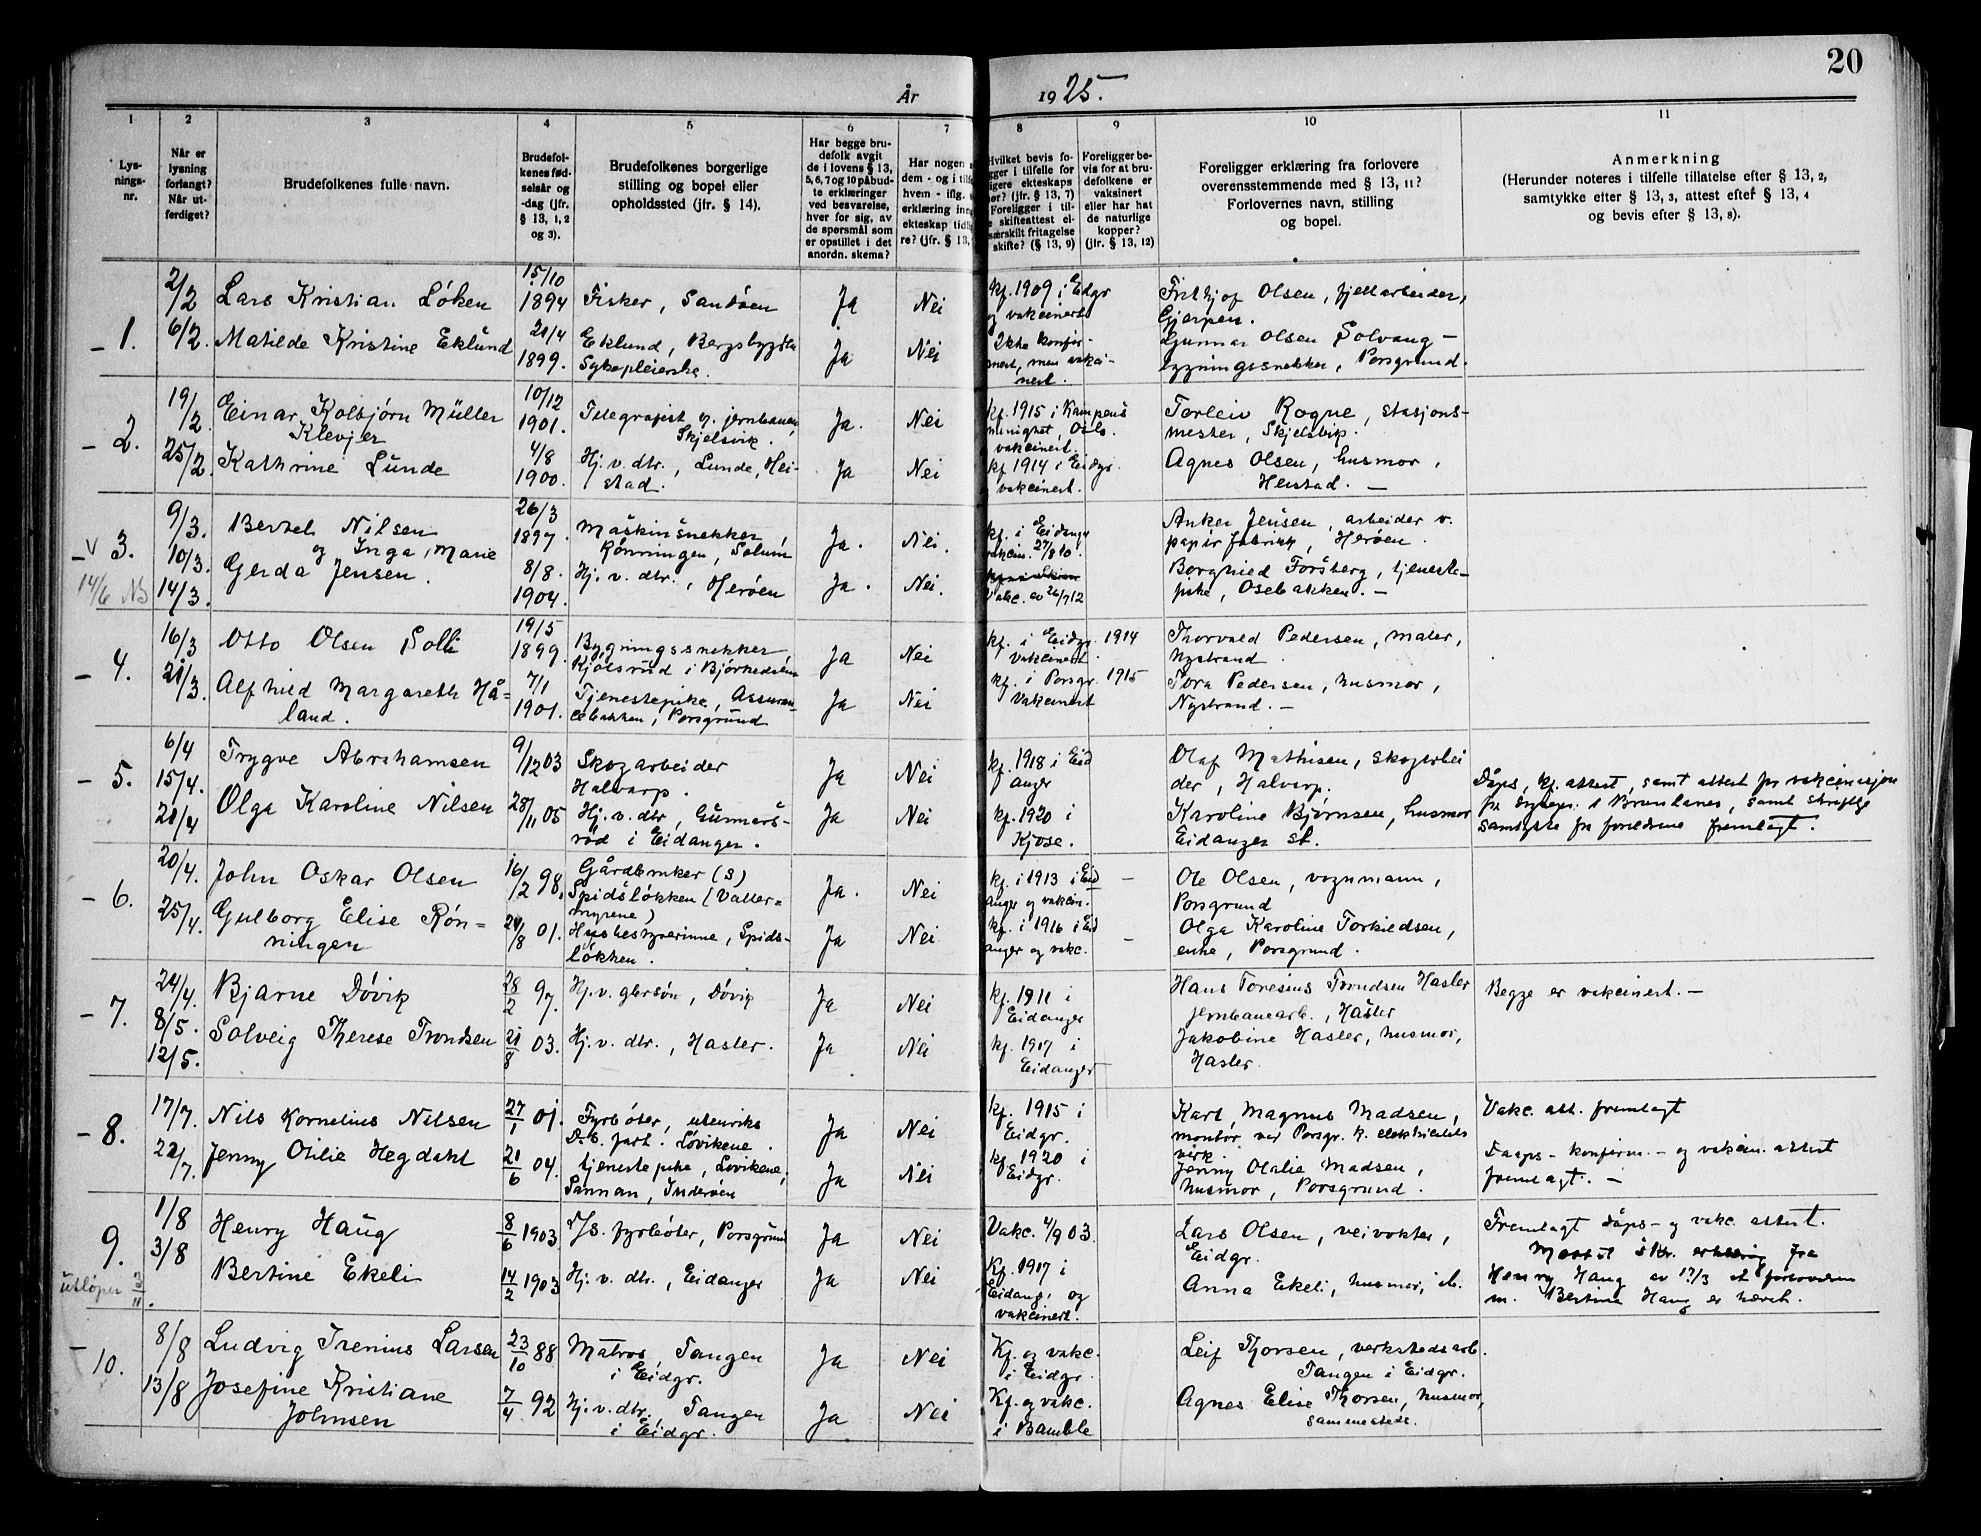 20
År 1925.
1 2 3 4 5 6 7 8 9 10 11
Lys-
nings-
nr.
Når er
lysning
forlangt?
Når ut-
ferdiget?
Brudefolkenes fulle navn.
Brudefol-
kenes fød-
selsår og
-dag (jfr.
§ 13, 1, 2
og 3).
Brudefolkenes borgerlige
stilling og bopel eller
opholdssted (jfr. § 14).
Har begge bru-
defolk avgit
de i lovens § 13,
5, 6, 7 og 10 påbud-
te erklæringer
ved besvarelse,
hver for sig, av
de spørsmål som
er opstillet i det
anordn. skema?
Har nogen
dem - og i tilf
hvem - iflg.
erklæring inn
ekteskap tidl
re? (jfr. § 13,
Hvilket bevis fo-
gger i tilfelle for
igere ekteskaps
er? (jfr. § 13, 7)
Foreligger i til-
e skifteattest el-
særskilt fritagelse
skifte? (§ 13, 9)
Foreligger be-
vis for at bru-
defolkene er
vaksinert
eller har hat
de naturlige
kopper?
(jfr. § 13, 12)
Foreligger erklæring fra forlovere
overensstemmende med § 13, 11?
Forlovernes navn, stilling
og bopel.
Anmerkning
(Herunder noteres i tilfelle tillatelse efter § 13, 2,
samtykke efter § 13, 3, attest efter § 13, 4
og bevis efter § 13, 8).
1.
2/2
6/2.
Lars Kristian Løken
15/10
1894
Fisker, Sandøen
Ja
Nei
kf. 1909 i Eidgr
og vakcinert
Frithjof Olsen, fjellarbeider,
Gjerpen.
Matilde Kristine Eklund
1899.
Eklund, Bergsbygda
Sykepleierske.
Ja
Nei
Ikke konfir-
mert, men vakci-
nert.
Gunnar Olsen Solvang -
bygningssnekker, Porsgrund.
2.
19/2.
25/2.
Einar Kolbjørn Müller
Klevjer
10/12
1901.
Telegrafist v. jernbanen,
Skjelsvik.
Ja.
Nei
kf. 1915 i Kampens
menighet, Oslo.
vakcinert.
Torleiv Rogne, stasjons-
mester, Skjelsvik.
Kathrine Lunde
4/8
1900.
Hj. v. dtr., Lunde, Hei-
stad.
Ja
Nei
kf 1914 i Eidgr.
vakcinert.
Agnes Olsen, husmor,
Heistad. -
v 3.
14/6 NB
9/3.
10/3.
14/3.
Bertel Nilsen
og Inga, Marie
26/3
1897.
Maskinsnekker,
Rønningen, Solum
Ja.
Nei.
kf. i Eidangr
vakcin. 27/8 10.
Anker Jensen, arbeider v.
papirfabrikk, Herøen.
Gerda Jensen.
8/8.
1904.
Hj. v. dtr., Herøen
Ja.
Nei.
Vakc. av 26/7 12
Borghild Forsberg, tjeneste-
pike, Osebakken. -
4.
16/3
21/3.
Otto Olsen Solli
19/5
1899.
Bygningssnekker,
Kjølsrud i Bjørkedalen
Ja
Nei
kf. i Eidgr. 1914
vakcinert.
Thorvald Pedersen, maler,
Nystrand.
Alfhild Margareth Hå-
land.
7/1
1901.
Tjenestepike, Assuran-
cebakken, Porsgrund
Ja
Nei
kf. i Porsgr. 1915
vakcinert
Tora Pedersen, husmor,
Nystrand. -
5.
6/4
15/4.
21/4
Trygve Abrahamsen
9/12 03
Skogarbeider
Halvarp.
Ja
Nei
kf. 1918 i Eid
anger
Olaf Mathisen, skogarbei
der, Halvarp.
Dåps, kf. attest, samt attest for vakcinasjon
Olga Karoline Nilsen
28/11 05
Hj. v. dtr., Gunnars-
rød i Eidanger.
Ja
Nei
kf. 1920 i
Kjose.
Karoline Bjørnsen, husmor
Eidanger st.
samtykke fra foreldrene fremlagt.
6.
20/4.
25/4.
John Oskar Olsen
16/2 98.
Gårdbruker (S)
Spidsløkken (Valler-
myrene)
Ja.
Nei
kf. i 1913 i Eid
anger og vakcin.
-
Ole Olsen, vognmann,
Porsgrund
Gulborg Elise Røn-
ningen
24/8 01.
Husbestyrerinne, Spids-
løkken.
Ja
Nei
kf. i 1916 i Eid
anger og vakc.
-
Olga Karoline Torkildsen,
enke, Porsgrund.
7.
24/4.
8/5.
12/5.
Bjarne Døvik
28/2 97.
Hj. v. gbrsøn, Døvik
Ja
Nei
kf. 1911 i
Eidanger
Hans Toresius Trondsen Hasler
jernbanearb., Hasler
Begge er vakcinert. -
Solveig Therese Trondsen
21/8 03.
Hj. v. dtr., Hasler.
Ja
Nei
kf. 1917 i
Eidanger
Jakobine Hasler, husmor,
Hasler.
8.
17/7.
22/7.
Nils Kornelius Nilsen
27/1 01.
Fyrbøter, utenriks
D.S. fart. Løvikene.
Ja
Nei
kf. 1915 i
Eidgr.
Karl Magnus Madsen,
montør ved Porsgr. k. elektricitets
virk
Vakc. att. fremlagt
Jenny Otilie Hegdahl
21/6 04.
tjenestepike, Løvikene,
Sannan, Inderøen
Ja
Nei
kf. 1920 i
Eidgr.
Jenny Otalie Madsen,
husmor, Porsgrund.
Daaps- konfirm. - og vakcin. attest
fremlagt. -
9.
utløper 3/11.
1/8
3/8
Henry Haug
8/6 1903
D/S. fyrbøter, Porsgrund
Ja
Nei
Vakc. 4/9 03.
Lars Olsen, veivokter,
Eidgr.
Fremlagt dåps- og vakc. attest.
Bertine Ekeli
14/2 1903
Hj. v. dtr., Eidanger
Ja
Nei
Kf. 1917 i
Eidang. og
vakcinert.
Anna Ekeli, husmor, ib.
Mottat skr. erklæring fra
Henry Haug av 17/3 at forlovelsen
m. Bertine Haug er hævet.
10.
8/8
13/8
Ludvig Irenius Larsen
23/10 88
Matros, Tangen
i Eidgr.
Ja
Nei
Kf. og vakc.
i Eidgr.
Leif Thorsen, verkstedsarb.
Tangen i Eidgr.
Josefine Kristiane
Johnsen
7/4 92
Hj. v. dtr. Tangen
i Eidgr.
Ja
Nei
Kf. og vakc.
i Bamble
Agnes Elise Thorsen, husmor,
sammesteds.